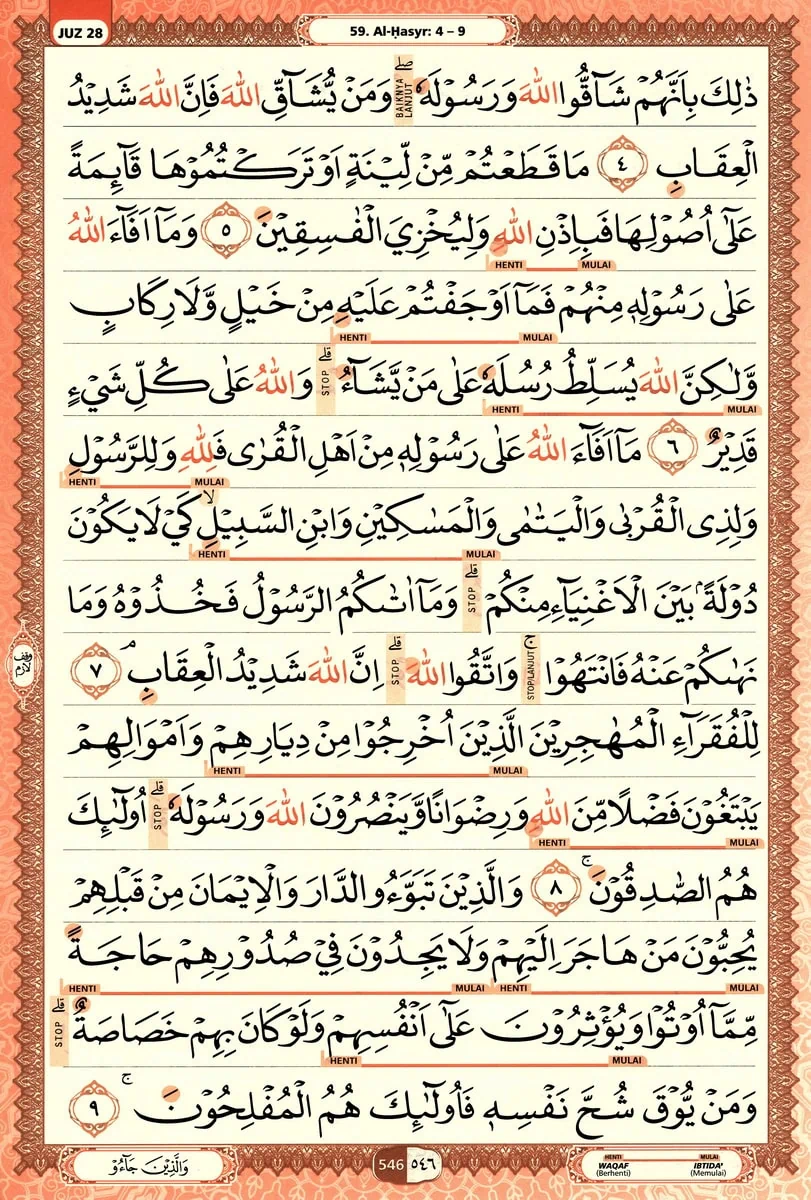 JUZ 28
59. Al-Ḥasyr: 4 – 9
ذٰلِكَ بِاَنَّهُمْ شَاۤقُّوا اللّٰهَ وَرَسُوْلَهٗ ۖ وَمَنْ يُّشَاۤقِّ اللّٰهَ فَاِنَّ اللّٰهَ شَدِيْدُ
BAIKNYA LANJUT
الْعِقَابِ ٤ مَا قَطَعْتُمْ مِّنْ لِّيْنَةٍ اَوْ تَرَكْتُمُوْهَا قَاۤىِٕمَةً
عَلٰٓى اُصُوْلِهَا فَبِاِذْنِ اللّٰهِ وَلِيُخْزِيَ الْفٰسِقِيْنَ ٥ وَمَآ اَفَاۤءَ اللّٰهُ
HENTI MULAI
عَلٰى رَسُوْلِهٖ مِنْهُمْ فَمَآ اَوْجَفْتُمْ عَلَيْهِ مِنْ خَيْلٍ وَّلَا رِكَابٍ
HENTI MULAI
وَّلٰكِنَّ اللّٰهَ يُسَلِّطُ رُسُلَهٗ عَلٰى مَنْ يَّشَاۤءُ ۗ وَاللّٰهُ عَلٰى كُلِّ شَيْءٍ
STOP
HENTI MULAI
قَدِيْرٌ ٦ مَآ اَفَاۤءَ اللّٰهُ عَلٰى رَسُوْلِهٖ مِنْ اَهْلِ الْقُرٰى فَلِلّٰهِ وَلِلرَّسُوْلِ
HENTI MULAI
وَلِذِى الْقُرْبٰى وَالْيَتٰمٰى وَالْمَسٰكِيْنِ وَابْنِ السَّبِيْلِۙ كَيْ لَا يَكُوْنَ
HENTI MULAI
دُوْلَةً ۢ بَيْنَ الْاَغْنِيَاۤءِ مِنْكُمْ ۗ وَمَآ اٰتٰىكُمُ الرَّسُوْلُ فَخُذُوْهُ وَمَا
STOP
نَهٰىكُمْ عَنْهُ فَانْتَهُوْا ۚ وَاتَّقُوا اللّٰهَ ۗ اِنَّ اللّٰهَ شَدِيْدُ الْعِقَابِ ۘ ٧
STOP/LANJUT STOP
وقف لازم
لِلْفُقَرَاۤءِ الْمُهٰجِرِيْنَ الَّذِيْنَ اُخْرِجُوْا مِنْ دِيَارِهِمْ وَاَمْوَالِهِمْ
HENTI MULAI
يَبْتَغُوْنَ فَضْلًا مِّنَ اللّٰهِ وَرِضْوَانًا وَّيَنْصُرُوْنَ اللّٰهَ وَرَسُوْلَهٗ ۗ اُولٰۤىِٕكَ
STOP
HENTI MULAI
هُمُ الصّٰدِقُوْنَ ۚ ٨ وَالَّذِيْنَ تَبَوَّءُو الدَّارَ وَالْاِيْمَانَ مِنْ قَبْلِهِمْ
يُحِبُّوْنَ مَنْ هَاجَرَ اِلَيْهِمْ وَلَا يَجِدُوْنَ فِيْ صُدُوْرِهِمْ حَاجَةً
HENTI MULAI HENTI MULAI
مِّمَّآ اُوْتُوْا وَيُؤْثِرُوْنَ عَلٰٓى اَنْفُسِهِمْ وَلَوْ كَانَ بِهِمْ خَصَاصَةٌ ۗ
STOP
HENTI MULAI
وَمَنْ يُّوْقَ شُحَّ نَفْسِهٖ فَاُولٰۤىِٕكَ هُمُ الْمُفْلِحُوْنَ ۚ ٩
وَالَّذِيْنَ جَاۤءُوْ
546 ٥٤٦
HENTI
WAQAF
(Berhenti)
MULAI
IBTIDA'
(Memulai)